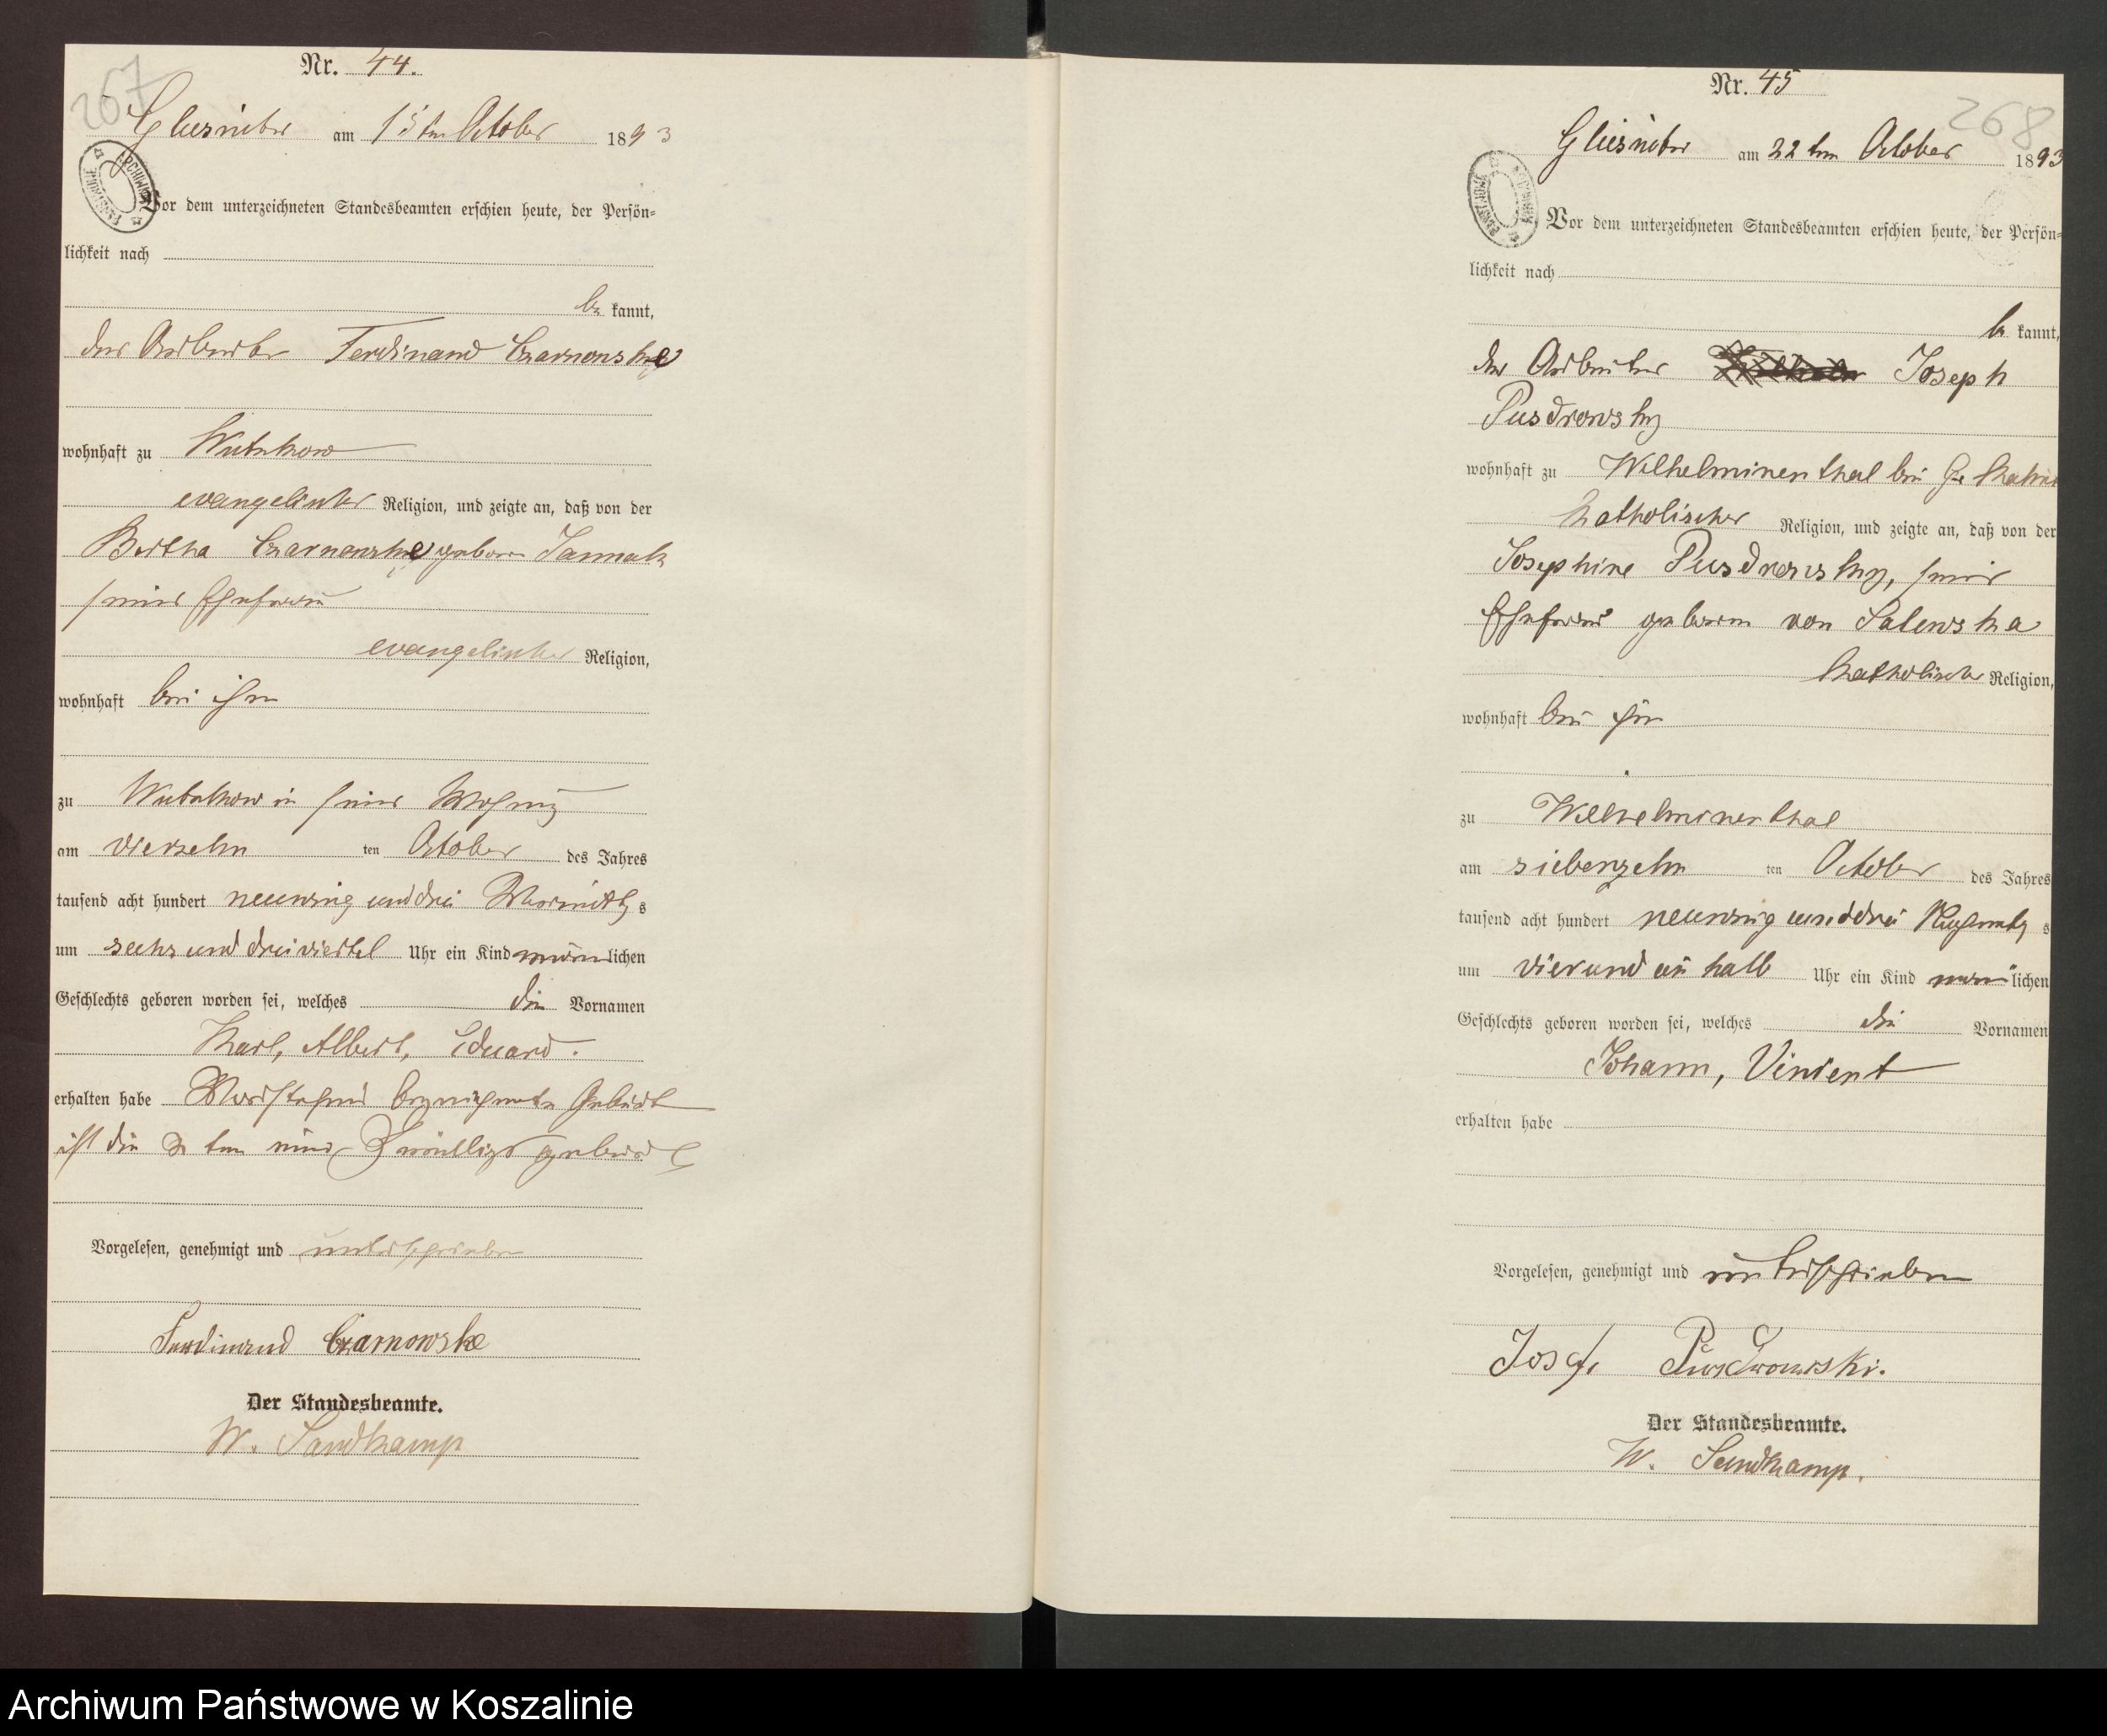 267
Nr. 44.
Gliesnitz am 15ten October 1893
ARCHIWUM PAŃSTWOWE
Vor dem unterzeichneten Standesbeamten erschien heute, der Persön=
lichkeit nach
be kannt,
der Arbeiter Ferdinand Czarnowske
wohnhaft zu
evangelischer Religion, und zeigte an, daß von der
Bertha Czarnowske geboren
seiner Ehefrau
evangelischer Religion,
wohnhaft bei ihm
zu in seiner Wohnung
am vierzehn ten October des Jahres
tausend acht hundert neunzig und drei Vormittags
um sechs und dreiviertel Uhr ein Kind männlichen
Geschlechts geboren worden sei, welches die Vornamen
Karl, Albert, Eduard.
erhalten habe Vorstehend bezeichnete Geburt
ist die 2 te einer Zwillingsgeburt
Vorgelesen, genehmigt und unterschrieben
Ferdinand Czarnowske
Der Standesbeamte.
W. Sandkamp
268
Nr. 45
Gliesnitz am 22ten October 1893
ARCHIWUM PAŃSTWOWE
Vor dem unterzeichneten Standesbeamten erschien heute, der Persön=
lichkeit nach
be kannt,
der Arbeiter Joseph
Pusdrowsky
wohnhaft zu Wilhelminenthal bei Gr
katholischer Religion, und zeigte an, daß von der
Josephine Pusdrowsky, seiner
Ehefrau geboren von Salewska
katholischer Religion,
wohnhaft bei ihm
zu Wilhelminenthal
am siebenzehn ten October des Jahres
tausend acht hundert neunzig und drei Nachmittags
um vier und ein halb Uhr ein Kind männlichen
Geschlechts geboren worden sei, welches die Vornamen
Johann, Vinient
erhalten habe
Vorgelesen, genehmigt und unterschrieben
Josef Pusdrowski.
Der Standesbeamte.
W. Sandkamp.
Archiwum Państwowe w Koszalinie